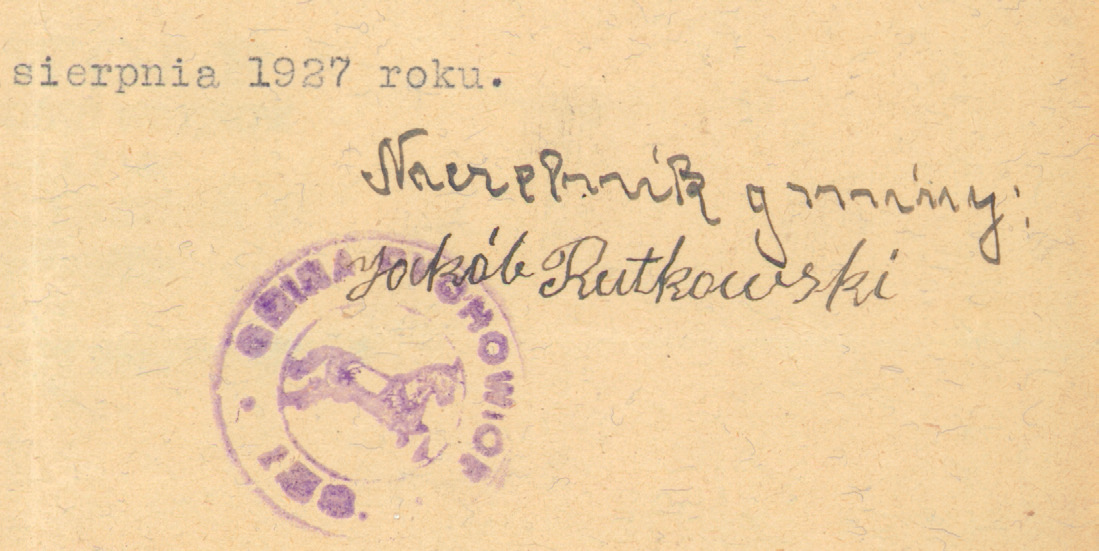 sierpnia 1927 roku.
Naczelnik gminy:
Jakób Rutkowski
GMINA